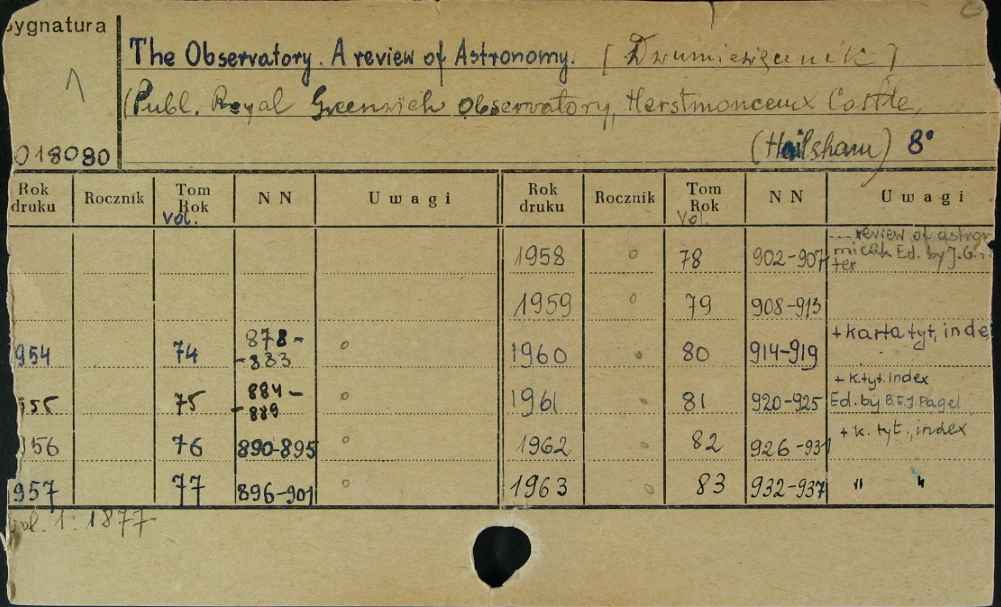 ygnatura
The Observatory. A review of Astronomy. [Dwumiesięcznik]
(Publ. Royal Greenwich Observatory, Herstmonceux Castle,
(Hailsham) 8°
018080
Rok druku Rocznik Tom Rok Vol. N N Uwagi Rok druku Rocznik Tom Rok Vol. N N Uwagi
1958 78 902-907 ... review of astro
Ed. by J.G.
1959 79 908-913
954 74 878-883 1960 80 914-919 + karta tyt, inde
55 75 884-889 1961 81 920-925 + k.tyt. index
Ed. by B.E.J. Pagel
956 76 890-895 1962 82 926-931 + k. tyt., index
957 77 896-901 1963 83 932-937 " "
vol. 1: 1877